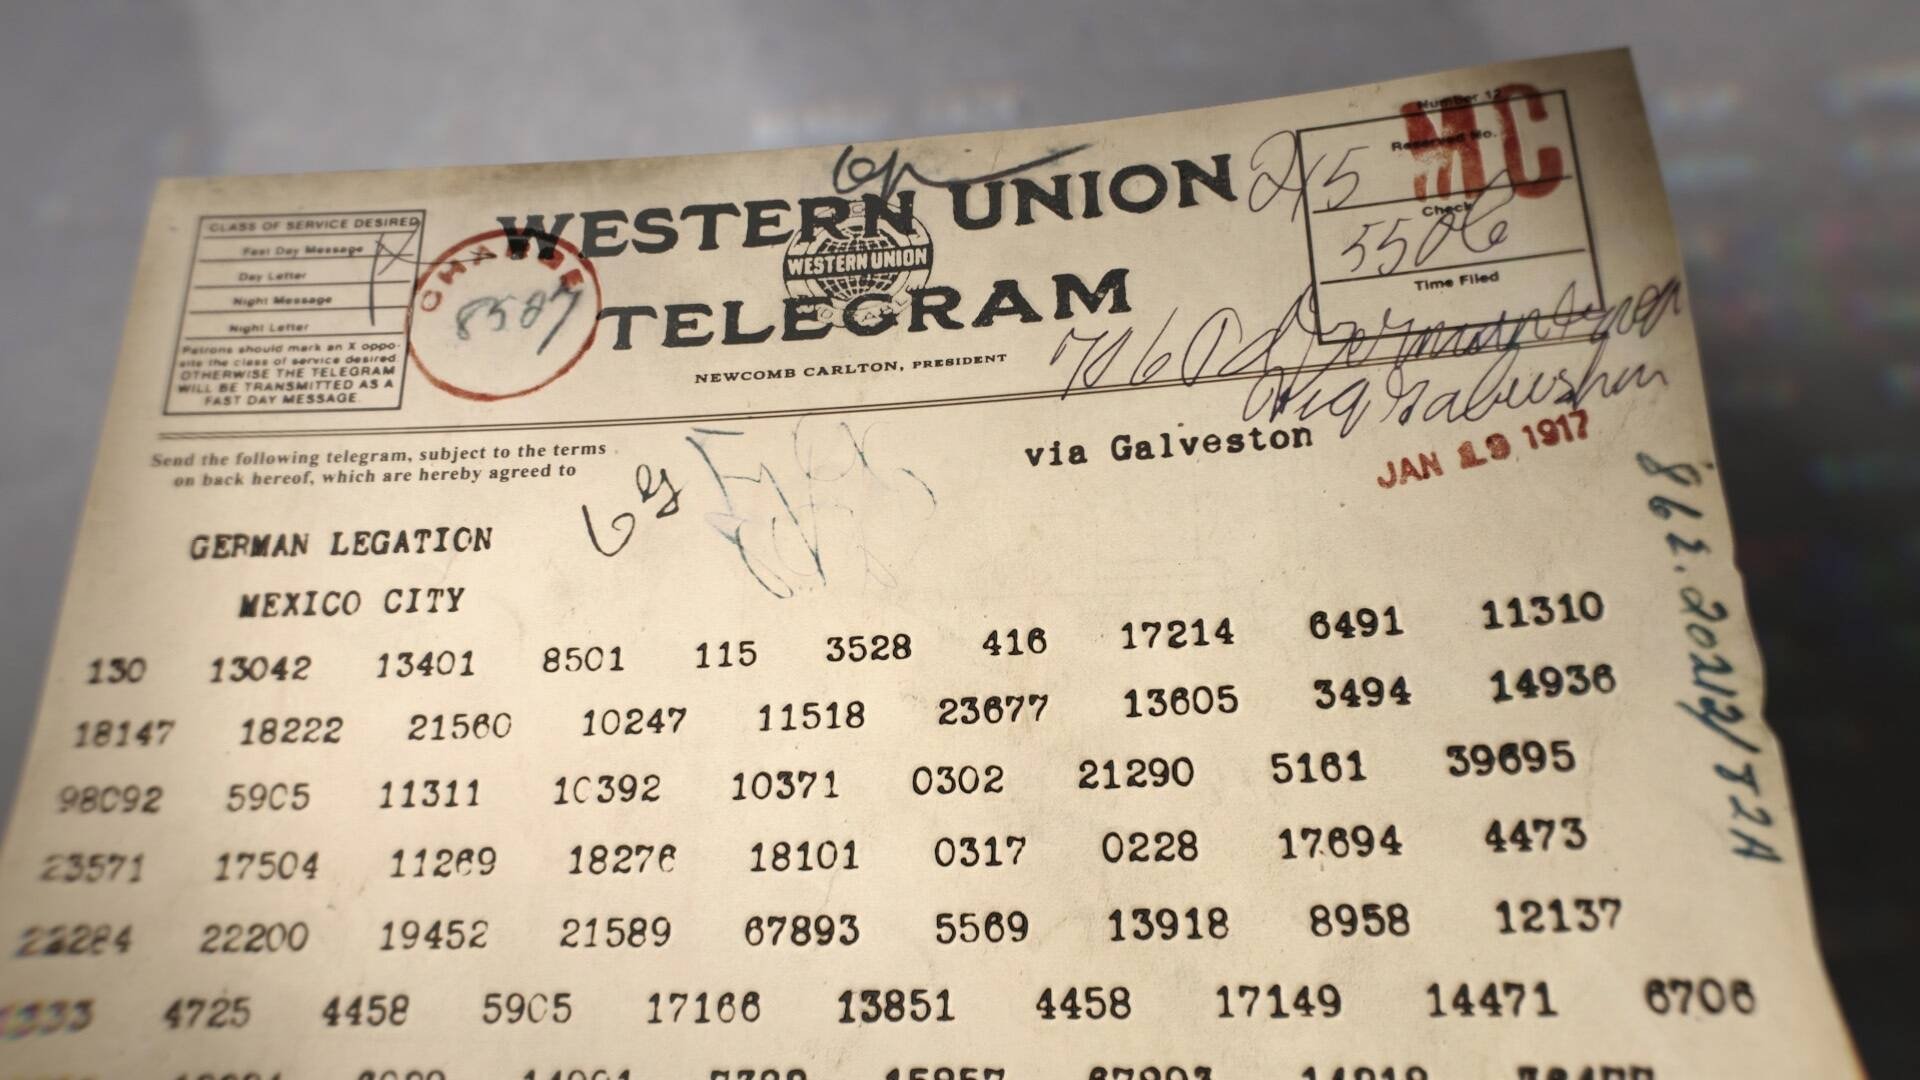 Number 12
MC
Reserved No.
215
Check
5506
Time Filed
WESTERN UNION
WESTERN UNION
TELEGRAM
NEWCOMB CARLTON, PRESIDENT
CLASS OF SERVICE DESIRED
Fast Day Message
Day Letter
Night Message
Night Letter
Patrons should mark an X oppo-
site the class of service desired
OTHERWISE THE TELEGRAM
WILL BE TRANSMITTED AS A
FAST DAY MESSAGE.
CHARGE
Send the following telegram, subject to the terms
on back hereof, which are hereby agreed to
via Galveston
JAN 19 1917
GERMAN LEGATION
MEXICO CITY
862.20212/82A
130 13042 13401 8501 115 3528 416 17214 6491 11310
18147 18222 21560 10247 11518 23677 13605 3494 14936
98092 5905 11311 10392 10371 0302 21290 5161 39695
23571 17504 11269 18276 18101 0317 0228 17694 4473
22284 22200 19452 21589 67893 5569 13918 8958 12137
1333 4725 4458 5905 17166 13851 4458 17149 14471 6706